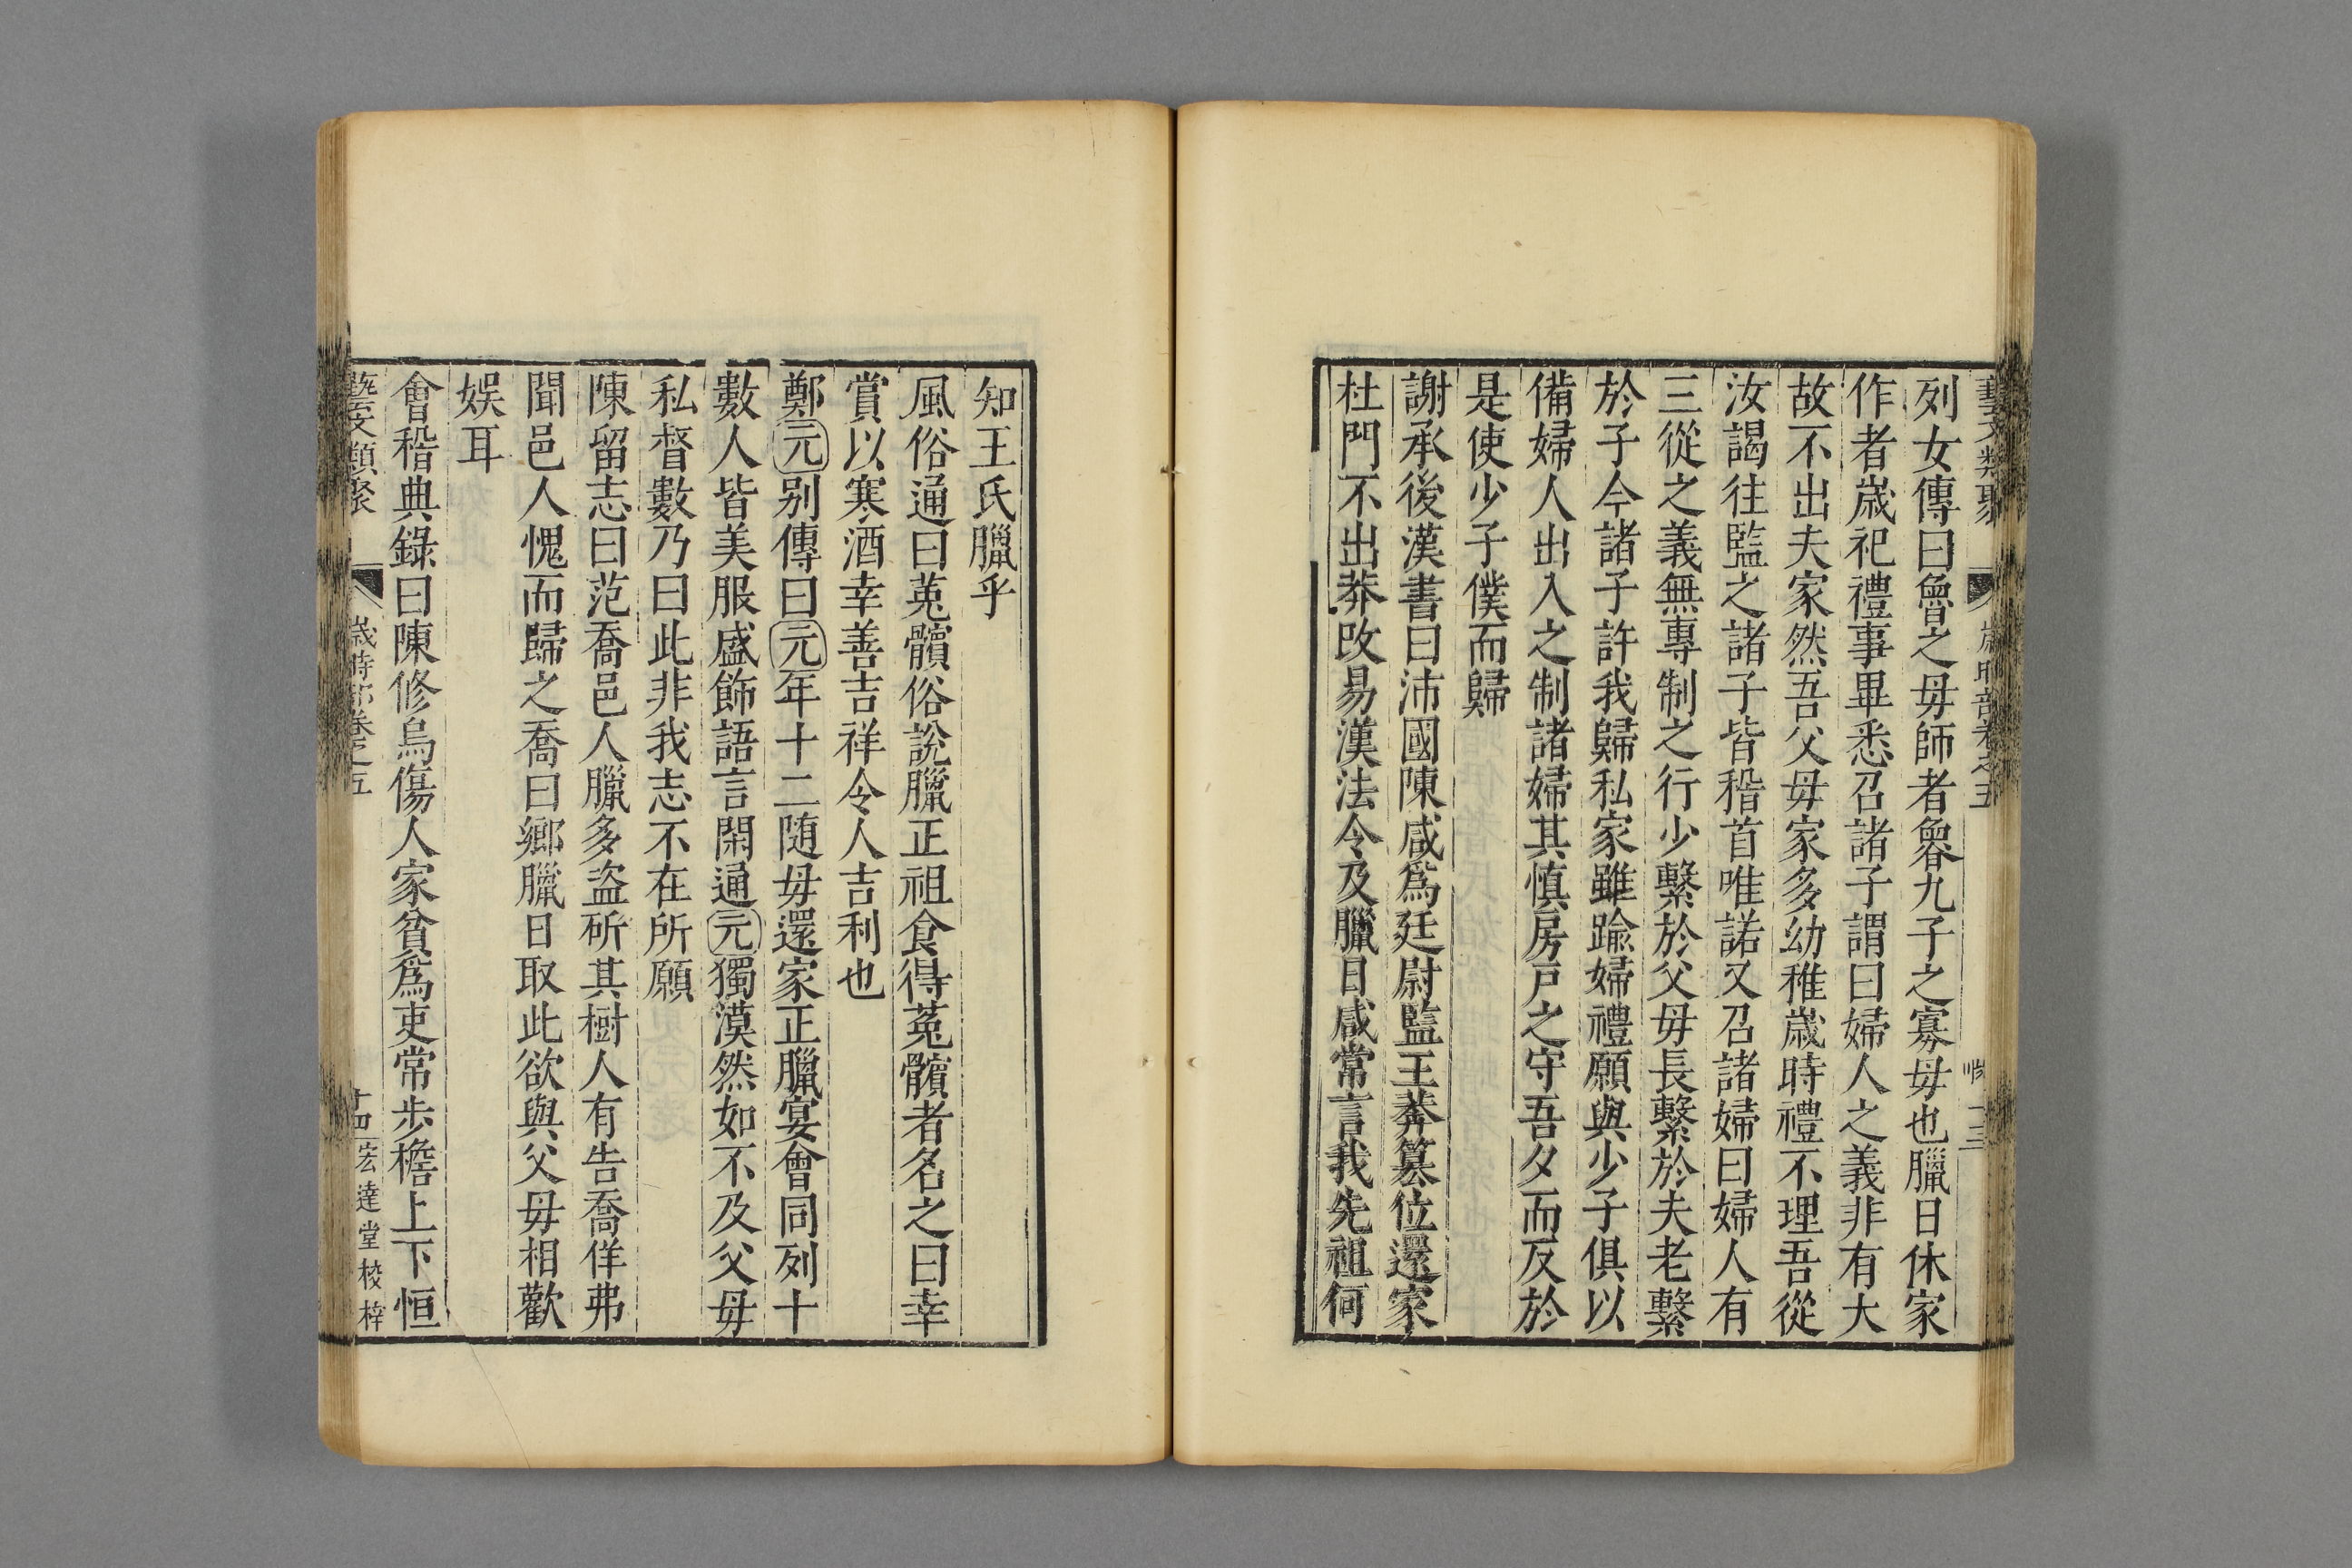 藝文類聚 歲時部卷之五
列女傳曰魯之母師者魯九子之寡母也臘日休家
作者歲祀禮事畢悉召諸子謂曰婦人之義非有大
故不出夫家然吾父母家多幼稚歲時禮不理吾從
汝謁往監之諸子皆稽首唯諾又召諸婦曰婦人有
三從之義無專制之行少繫於父母長繫於夫老繫
於子今諸子許我歸私家雖踰婦禮願與少子俱以
備婦人出入之制諸婦其慎房戸之守吾夕而反於
是使少子僕而歸
謝承後漢書曰沛國陳咸爲廷尉監王莽簒位還家
杜門不出莽改易漢法令及臘日咸常言我先祖何
知王氏臘乎
風俗通曰菟髕俗說臘正祖食得菟髕者名之曰幸
賞以寒酒幸善吉祥令人吉利也
鄭元别傳曰元年十二随母還家正臘宴會同列十
數人皆美服盛飾語言閑通元獨漠然如不及父母
私督數乃曰此非我志不在所願
陳留志曰范喬邑人臘多盗斫其樹人有告喬佯弗
聞邑人愧而歸之喬曰鄉臘日取此欲與父母相歡
娱耳
會稽典錄曰陳修烏傷人家貧爲吏常步檐上下恒
藝文類聚 歲時部卷之五 十四 宏達堂校梓